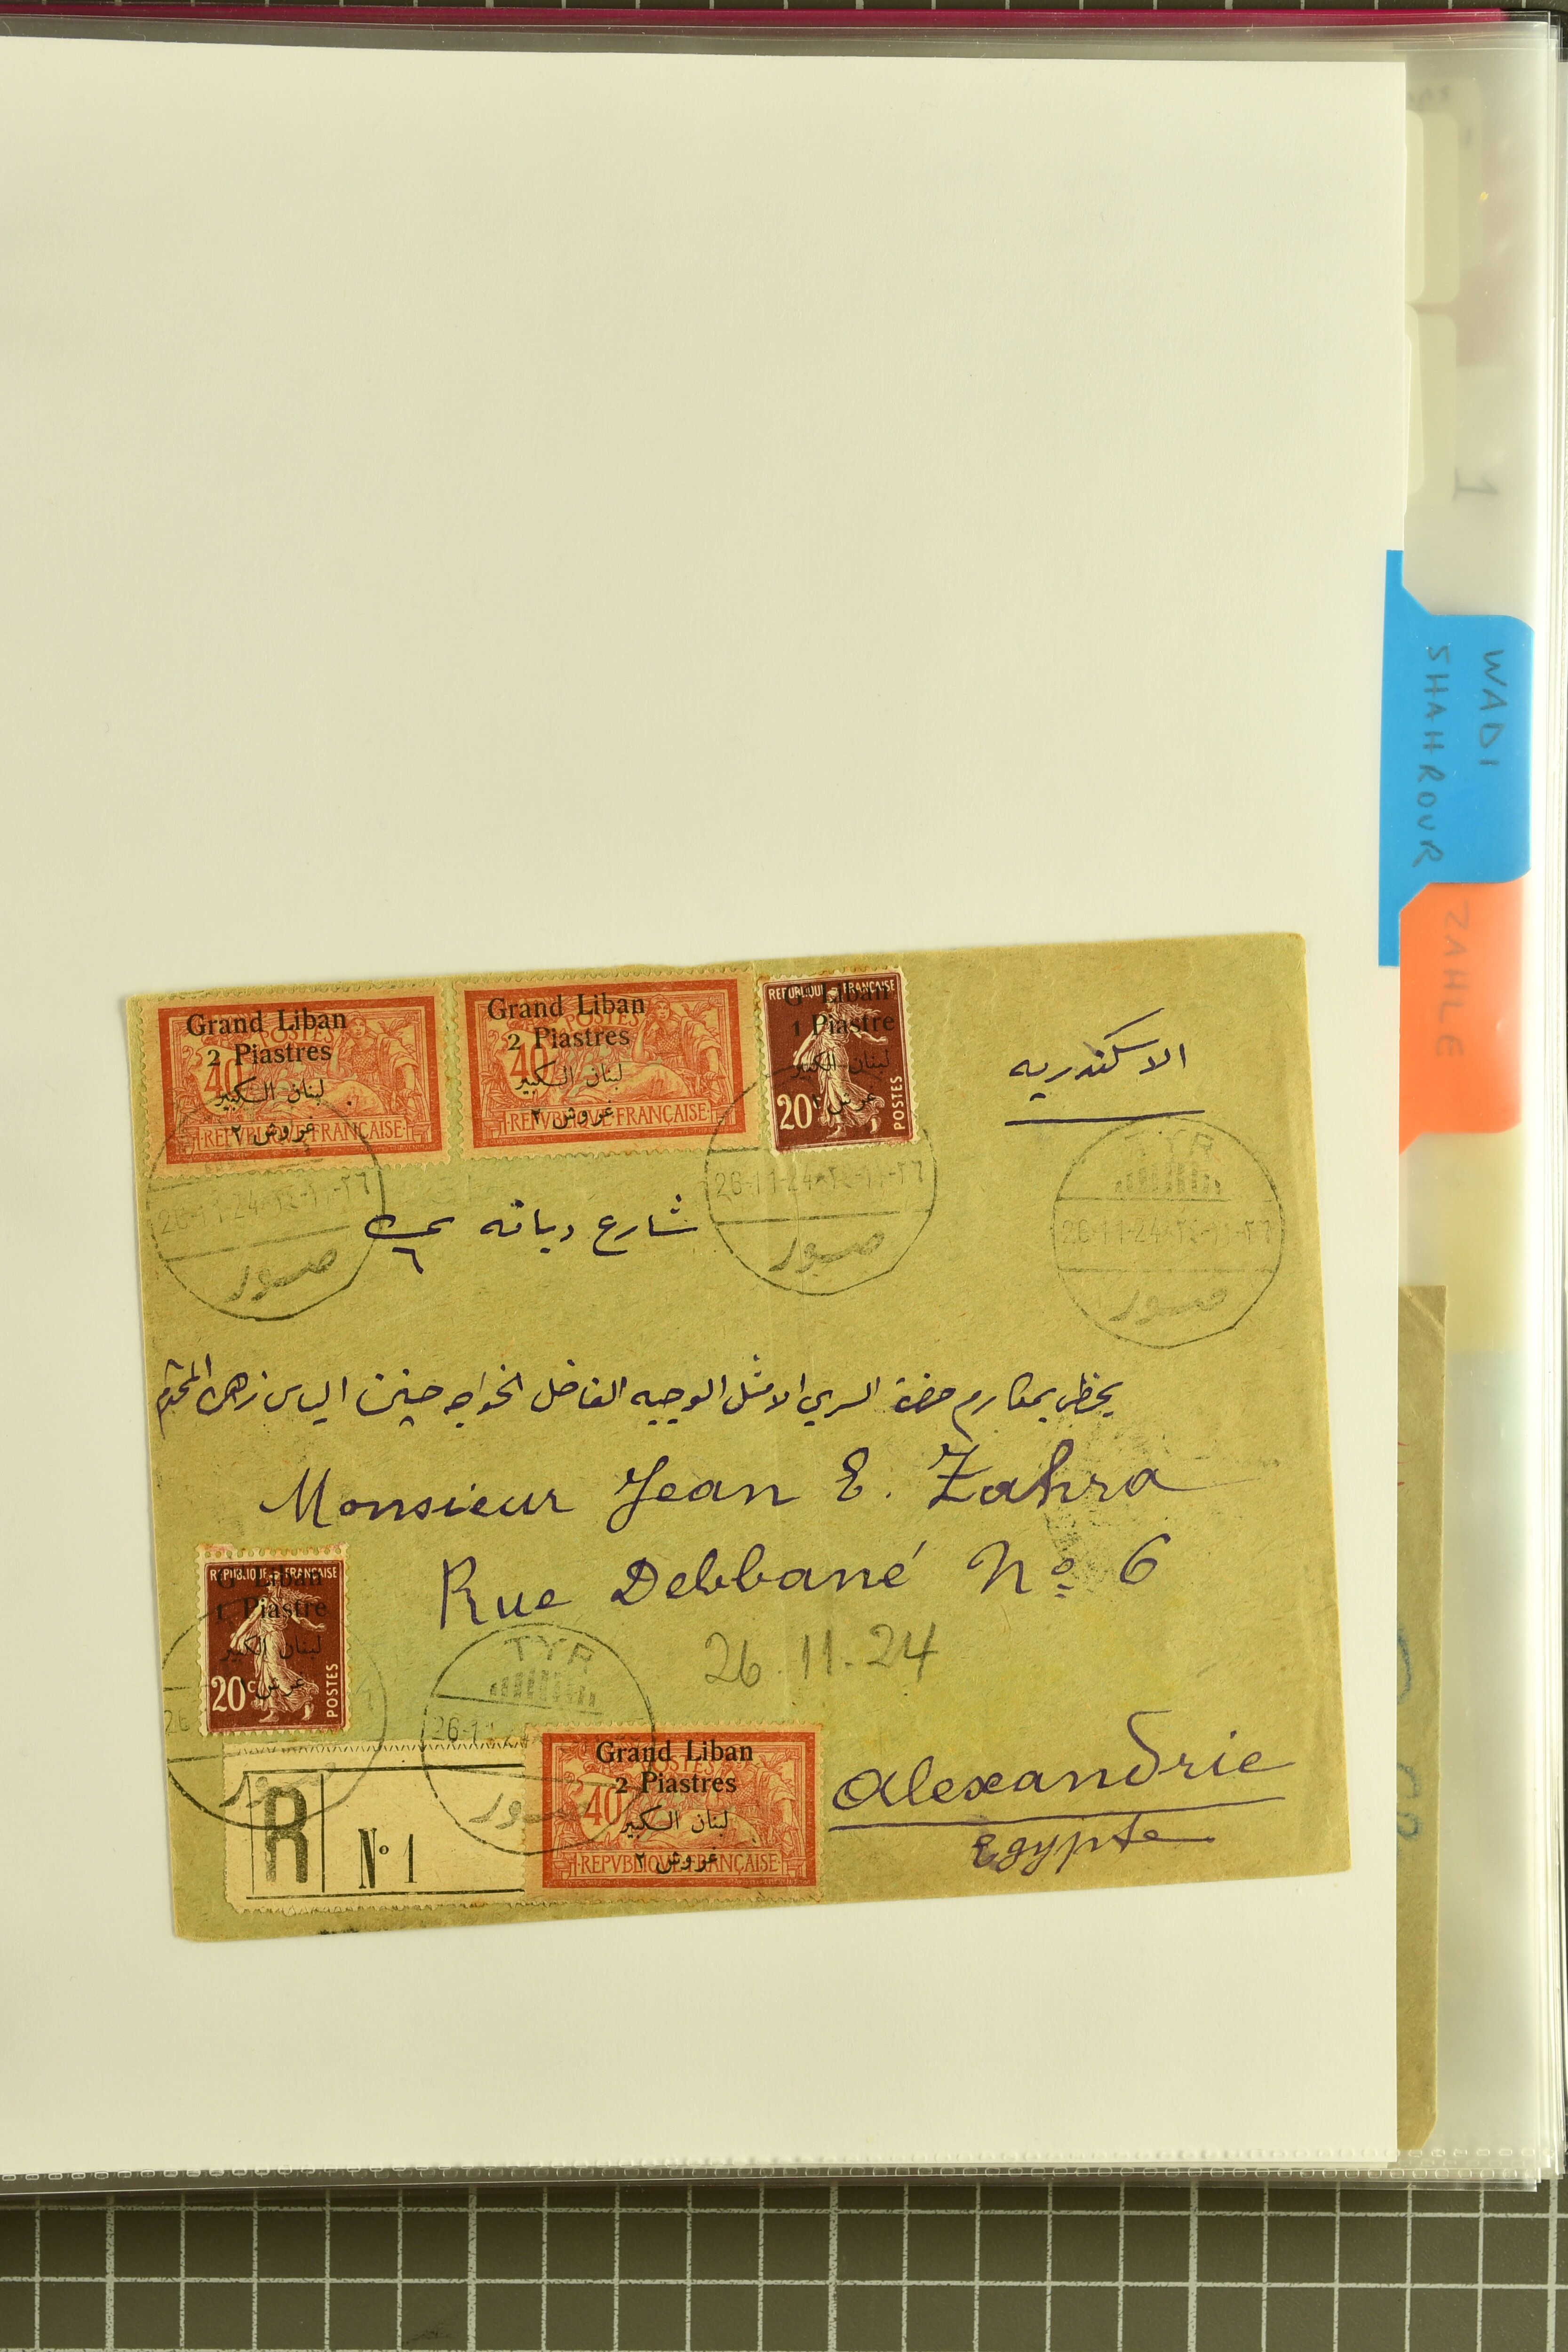 Grand Liban
2 Piastres
لبنان الكبير
غروش ٢
POSTES
40
REPVBLIQVE FRANÇAISE
Grand Liban
2 Piastres
لبنان الكبير
غروش ٢
POSTES
40
REPVBLIQVE FRANÇAISE
REPUBLIQUE FRANÇAISE
Gd Liban
1 Piastre
لبنان الكبير
غرش
20c
POSTES
الاسكندريه
26-11-24 ٢٤-١١-٢٦
صور
26-11-24 ٢٤-١١-٢٦
صور
TYR
26-11-24 ٢٤-١١-٢٦
صور
شارع دبانه
٦
يحظى بمكارم حضرة السري الامثل الوجيه الفاضل الخواجه الياس زهره المحترم
Monsieur Jean E. Zahra
Rue Debbané No 6
26.11.24
REPUBLIQUE FRANÇAISE
Gd Liban
1 Piastre
لبنان الكبير
غرش
20c
POSTES
26
صور
TYR
26-11-24
صور
R
No 1
Grand Liban
2 Piastres
لبنان الكبير
غروش ٢
POSTES
40
REPVBLIQVE FRANÇAISE
Alexandrie
Egypte
1
WADI
SHAHROUR
ZAHLE